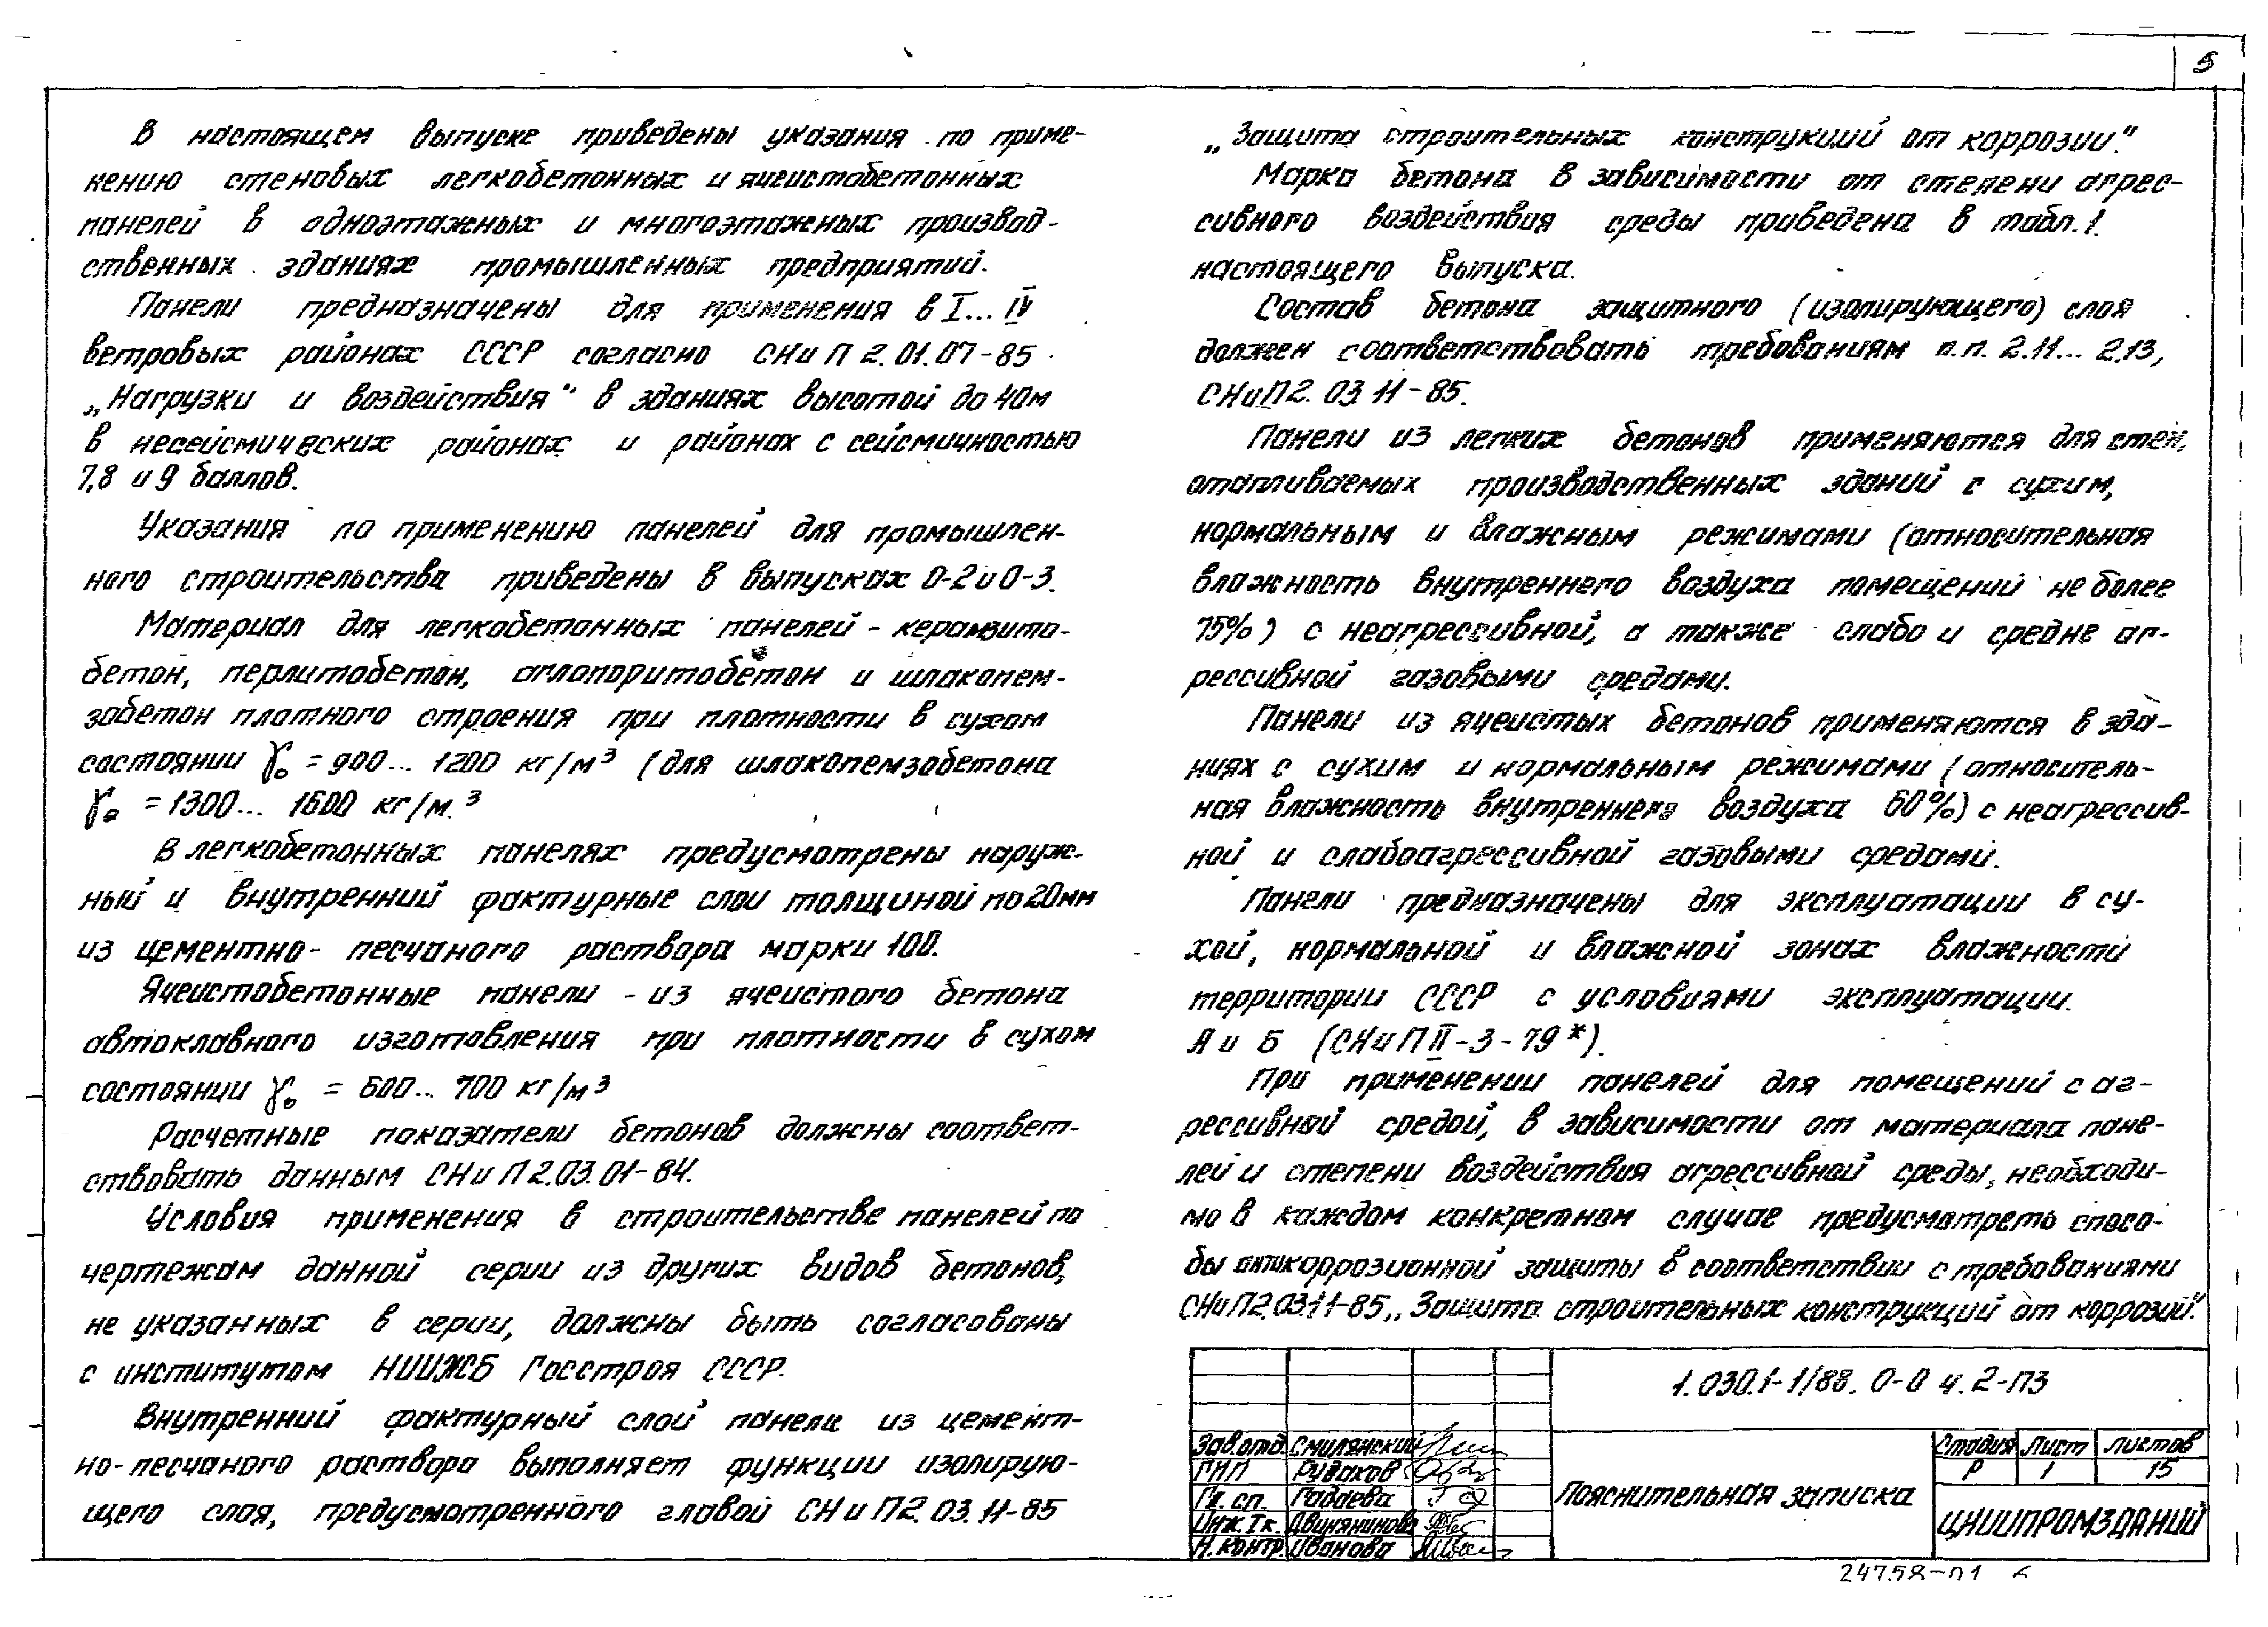 5
В настоящем выпуске приведены указания по приме-
нению стеновых легкобетонных и ячеистобетонных
панелей в одноэтажных и многоэтажных производ-
ственных зданиях промышленных предприятий.
Панели предназначены для применения в I... IV
ветровых районах СССР согласно СНиП 2.01.07-85
„Нагрузки и воздействия" в зданиях высотой до 40м
в несейсмических районах и районах с сейсмичностью
7,8 и 9 баллов.
Указания по применению панелей для промышлен-
ного строительства приведены в выпусках 0-2 и 0-3.
Материал для легкобетонных панелей - керамзито-
бетон, перлитобетон, аглопоритобетон и шлакопем-
зобетон плотного строения при плотности в сухом
состоянии γ₀ = 900... 1200 кг/м³ (для шлакопемзобетона
γ₀ = 1300... 1600 кг/м.³
В легкобетонных панелях предусмотрены наруж-
ный и внутренний фактурные слои толщиной по 20мм
из цементно- песчаного раствора марки 100.
Ячеистобетонные панели - из ячеистого бетона
автоклавного изготовления при плотности в сухом
состоянии γ₀ = 600... 700 кг/м³
Расчетные показатели бетонов должны соответ-
ствовать данным СНиП 2.03.01-84.
Условия применения в строительстве панелей по
чертежам данной серии из других видов бетонов,
не указанных в серии, должны быть согласованы
с институтом НИИЖБ Госстроя СССР.
Внутренний фактурный слой панели из цемент-
но-песчаного раствора выполняет функции изолирую-
щего слоя, предусмотренного главой СНиП2.03.11-85
„Защита строительных конструкций от коррозии."
Марка бетона в зависимости от степени агрес-
сивного воздействия среды приведена в табл.1.
настоящего выпуска.
Состав бетона защитного (изолирующего) слоя
должен соответствовать требованиям п.п. 2.11... 2.13,
СНиП2.03.11-85.
Панели из легких бетонов применяются для стен,
отапливаемых производственных зданий с сухим,
нормальным и влажным режимами (относительная
влажность внутреннего воздуха помещений не более
75%) с неагрессивной, а также слабо и средне аг-
рессивной газовыми средами.
Панели из ячеистых бетонов применяются в зда-
ниях с сухим и нормальным режимами (относитель-
ная влажность внутреннего воздуха 60%) с неагрессив-
ной и слабоагрессивной газовыми средами.
Панели предназначены для эксплуатации в су-
хой, нормальной и влажной зонах влажности
территории СССР с условиями эксплуатации.
А и Б (СНиП II-3-79*).
При применении панелей для помещений с аг-
рессивной средой, в зависимости от материала пане-
лей и степени воздействия агрессивной среды, необходи-
мо в каждом конкретном случае предусмотреть спосо-
бы антикоррозионной защиты в соответствии с требованиями
СНиП2.03.11-85„Защита строительных конструкций от коррозий."
1.030.1-1/88. 0-0 ч. 2-ПЗ
Зав.отд. Смилянский
ГИП Рудаков
Гл. сп. Гадаева
Инж. Iк. Двинянинова
Н.контр. Иванова
Пояснительная записка
Стадия Лист Листов
Р 1 15
ЦНИИПРОМЗДАНИЙ
24758-01 6